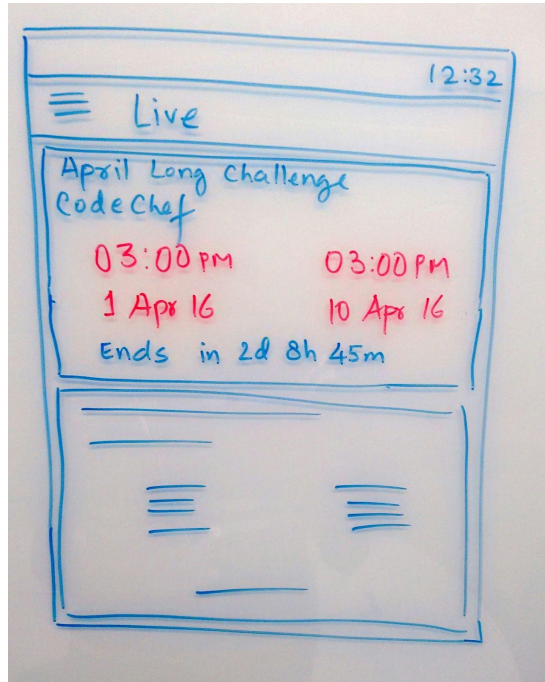 12:32
Live
April Long Challenge
CodeChef
03:00 PM 03:00 PM
1 Apr 16 10 Apr 16
Ends in 2d 8h 45m